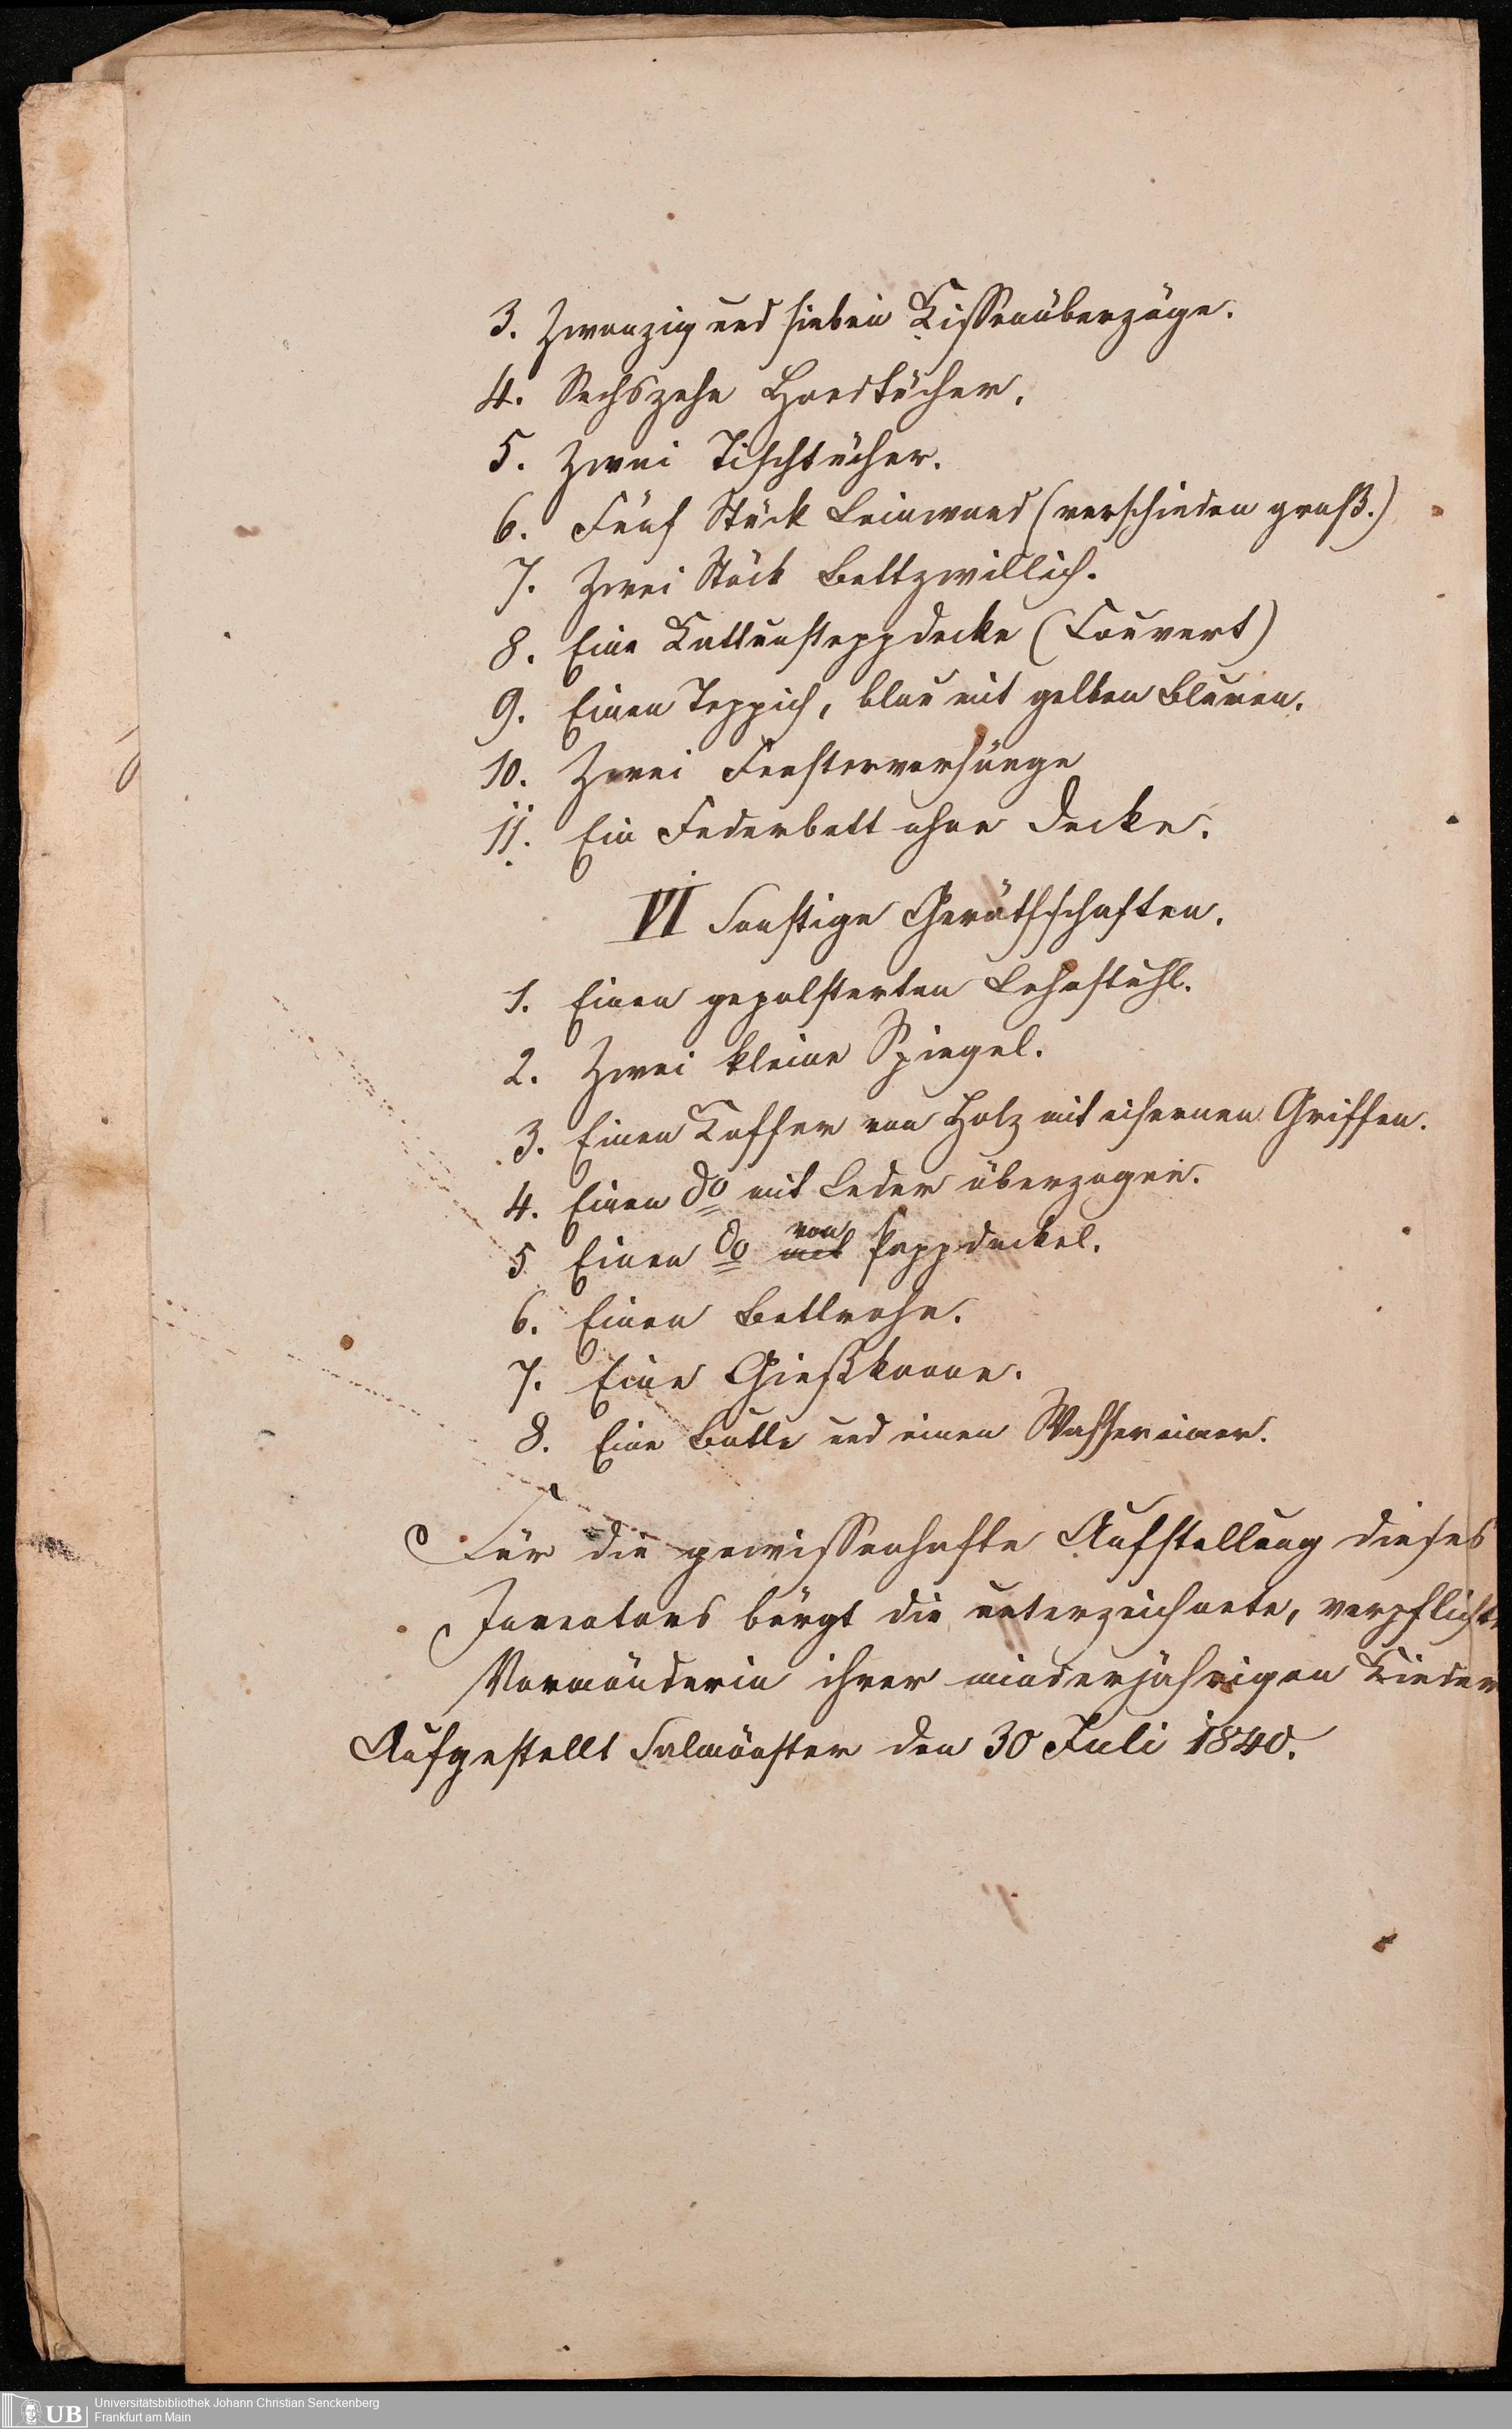 3. Zwanzig und sieben Kissenüberzüge.
4. Sechszehn Handtücher.
5. Zwei Tischtücher.
6. Fünf Stück Leinwand (verschieden groß.)
7. Zwei Stück Bettzwillich.
8. Eine Kattunsteppdecke (Couvert)
9. Einen Teppich, blau mit gelben Blumen.
10. Zwei Fenstervorhänge
11. Ein Federbett ohne Decke.
VI Sonstige Geräthschaften.
1. Einen gepolsterten Lehnstuhl.
2. Zwei kleine Spiegel.
3. Einen Koffer von Holz mit eisernen Griffen.
4. Einen do mit Leder überzogen.
5 Einen do mit von Pappdeckel.
6. Einen
7. Eine Gießkanne.
8. Eine Butte und einen Wassereimer.
Für die gewissenhafte Aufstellung dieses
Inventars bürgt die unterzeichnete, verpflichte
Vormünderin ihrer minderjährigen Kinder
Aufgestellt Salmünster den 30 Juli 1840.
UB
Universitätsbibliothek Johann Christian Senckenberg
Frankfurt am Main